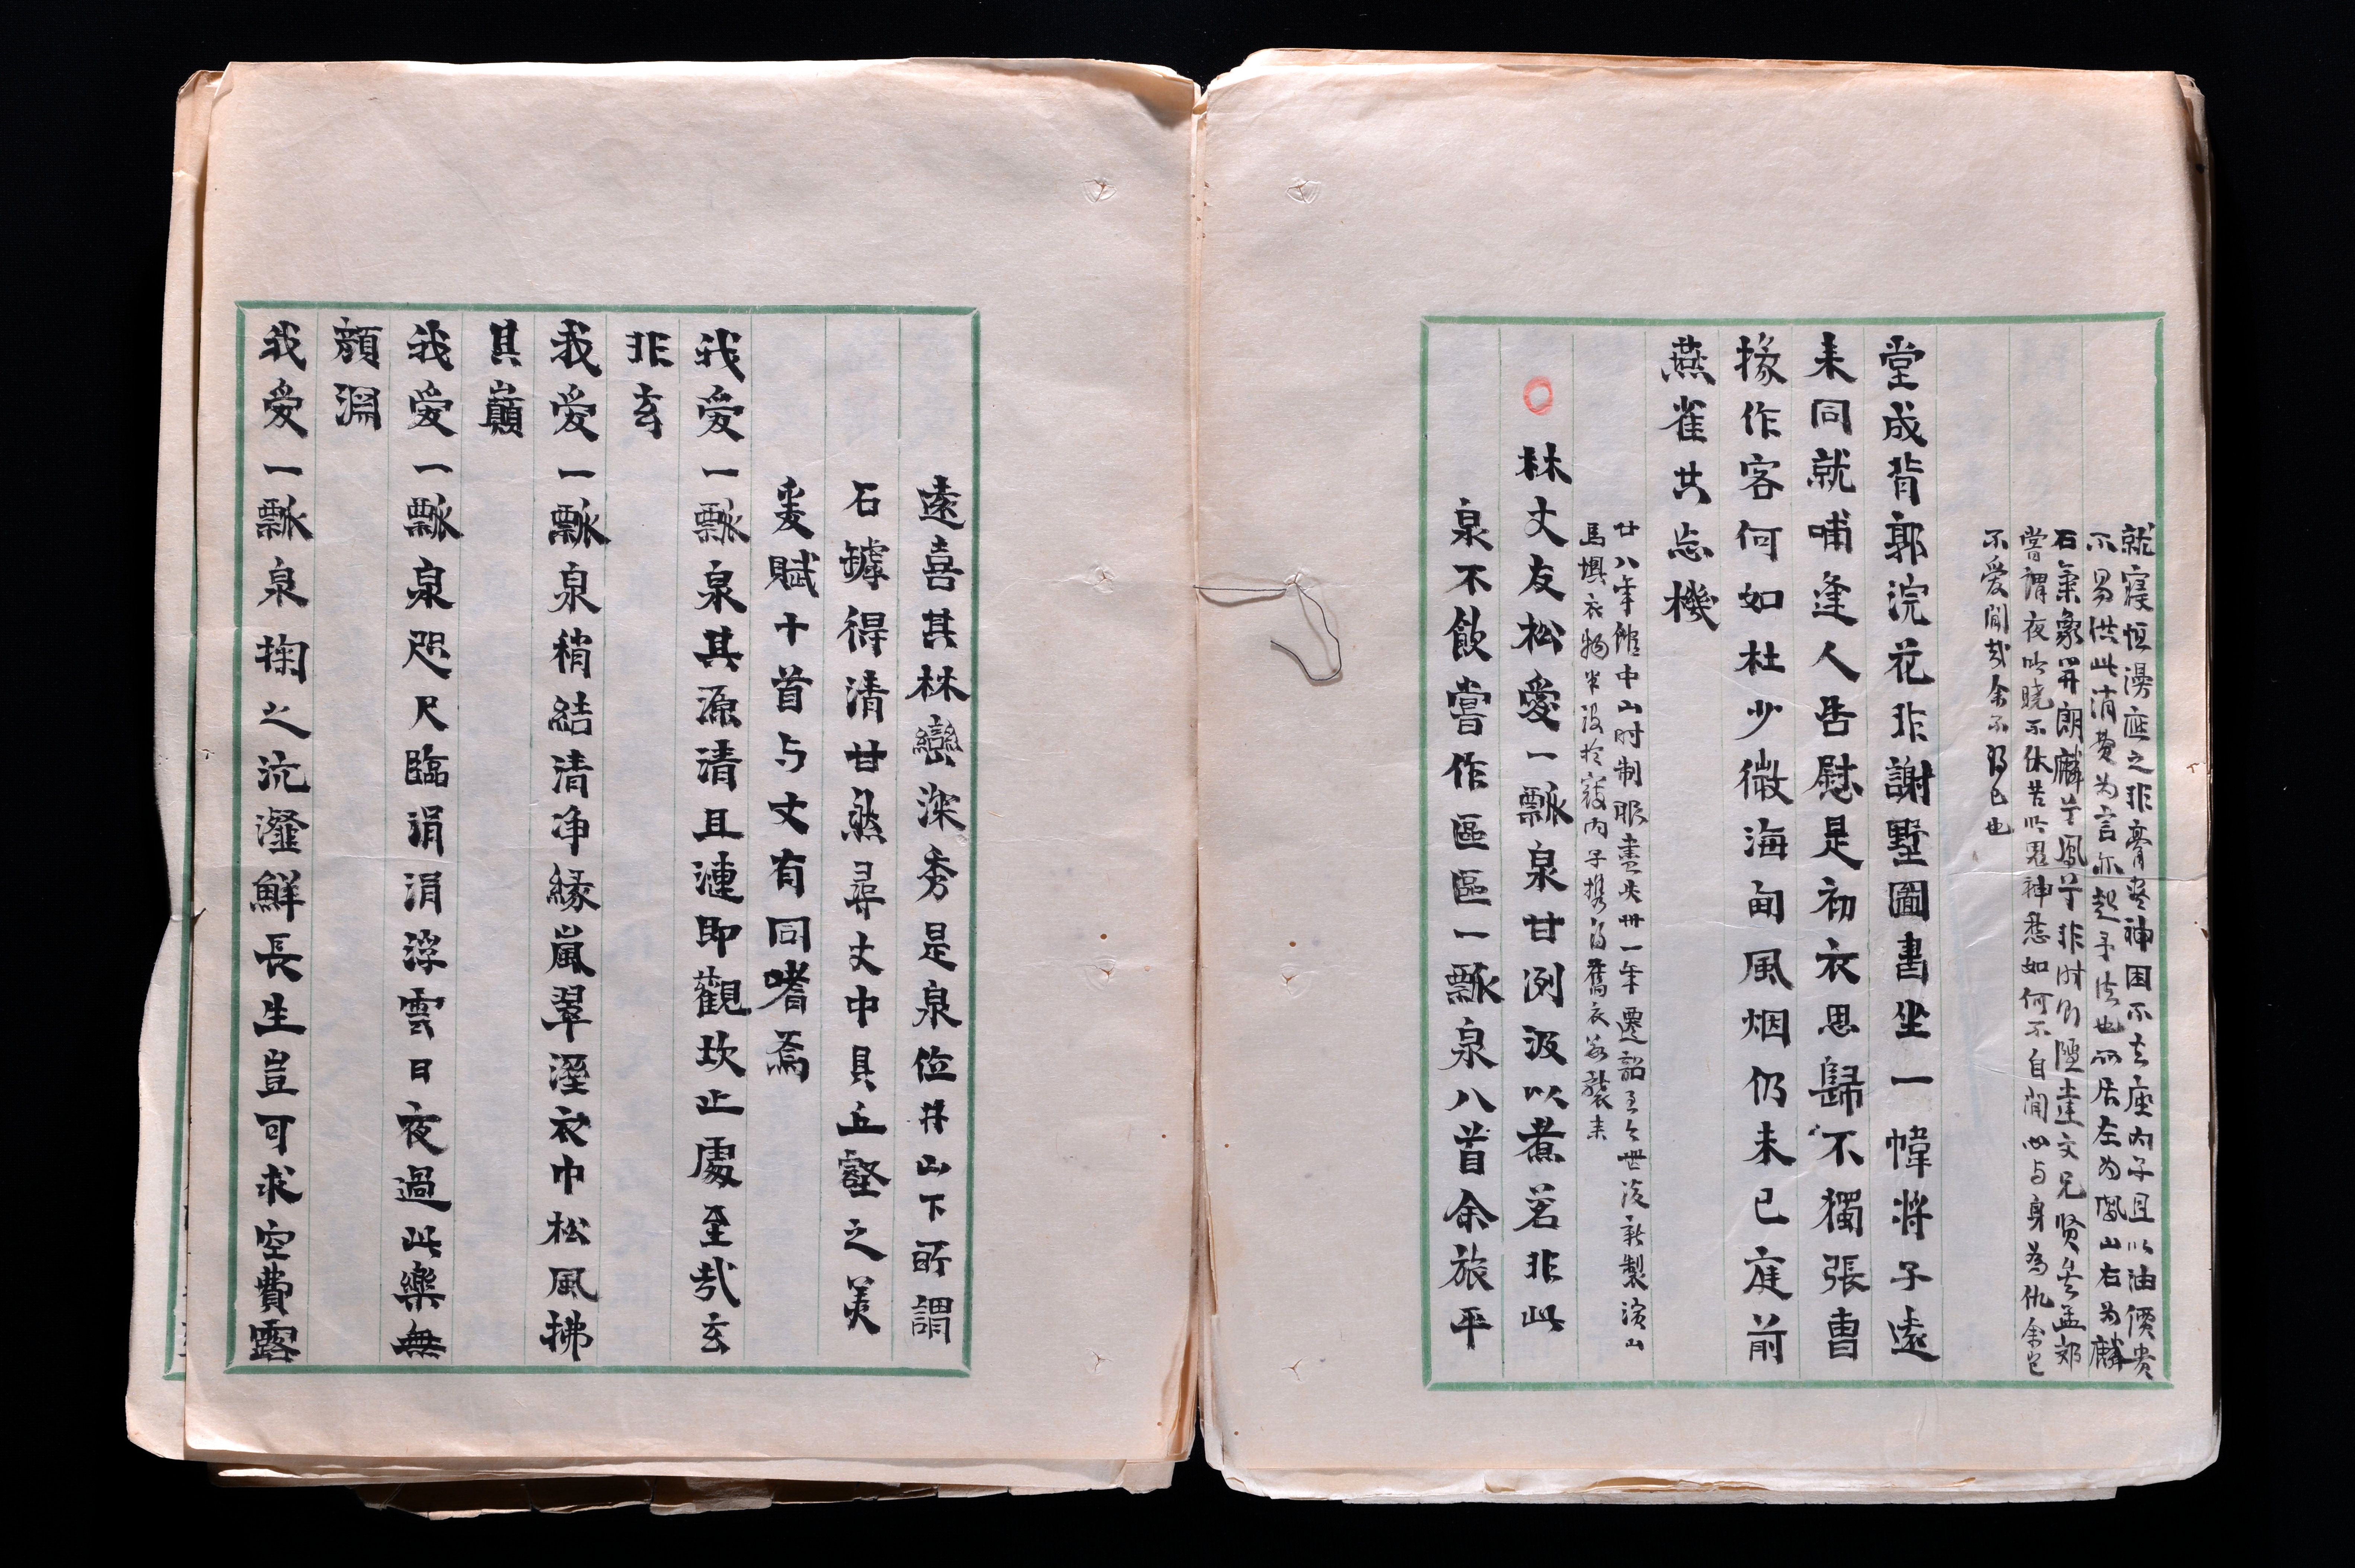 就寢恒漫應之非膏盡神困不去座內子且以油價貴
不易供此消費为言亦起予法也所居左为鳳山右为麟
石氣象開朗麟兮鳳兮非時則隱達文兄賢矣孟郊
嘗謂夜吟曉不休苦吟鬼神愁如何不自閒心与身為仇余豈
不愛閒哉余不得已也
堂成背郭浣花非謝墅圖書坐一幃將子遠
来同就哺逢人告慰是初衣思歸不獨張曹
掾作客何如杜少微海甸風烟仍未已庭前
燕雀共忘機
廿八年館中山时制服盡失卅一年遷韶至今世後新製濱山
馬壩衣物半没於寇内子携有舊衣為襲来
林丈友松愛一瓢泉甘洌汲以煮茗非此
泉不飲嘗作區區一瓢泉八首余旅平
遠喜其林巒深秀是泉位井山下所謂
石罅得清甘然尋丈中具丘壑之美
爰賦十首与丈有同嗜焉
我愛一瓢泉其源清且漣即觀坎止處至哉玄
非玄
我愛一瓢泉稍結清净緣嵐翠溼衣巾松風拂
其巔
我愛一瓢泉咫尺臨涓涓浮雲日夜過此樂無
顏淵
我愛一瓢泉掬之沆瀣鮮長生豈可求空費露